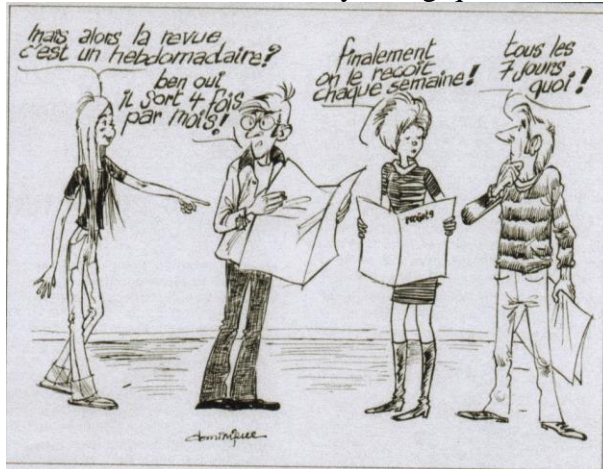 mais alors la revue
c'est un hebdomadaire?
ben oui
il sort 4 fois
par mois!
finalement
on le reçoit
chaque semaine!
tous les
7 jours
quoi!
dominique